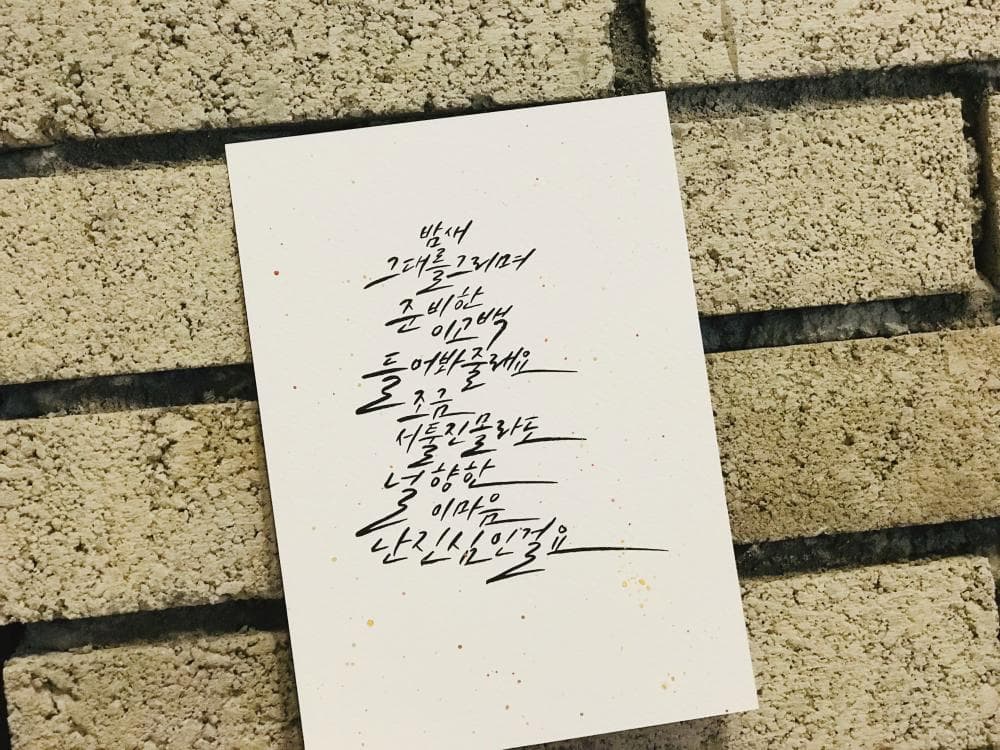 밤새
그대를그리며
준비한
이고백
들어봐줄래요
조금
서툴진몰라도
널향한
이마음
난진심인걸요